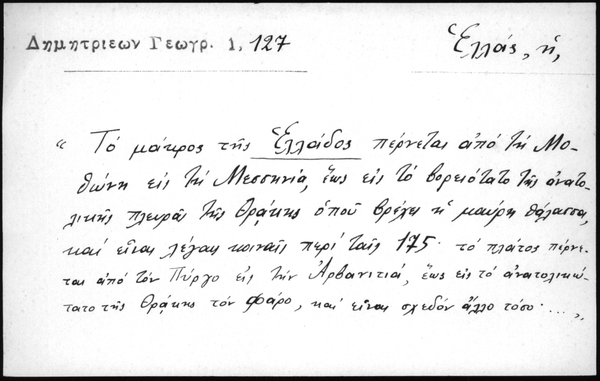 Δημητριεων Γεωγρ. 1, 127
Ἑλλάς, ἡ,
“ Τό μάκρος τῆς Ἑλλάδος πέρνεται ἀπό τή Μο-
θώνη εἰς τή Μεσσηνία, ἕως εἰς τό βορειότατο τῆς ἀνατο-
λικῆς πλευρᾶς τῆς Θράκης ὁποῦ βρέχει ἡ μαύρη θάλασσα,
καί εἶναι λέγαις κοιναῖς περί ταῖς 175· τό πλάτος πέρνε-
ται ἀπό τόν Πύργο εἰς τήν Ἀρβανιτιά, ἕως εἰς τό ἀνατολικώ-
τατο τῆς Θράκης τόν Φάρο, καί εἶναι σχεδόν ἄλλο τόσο ... „